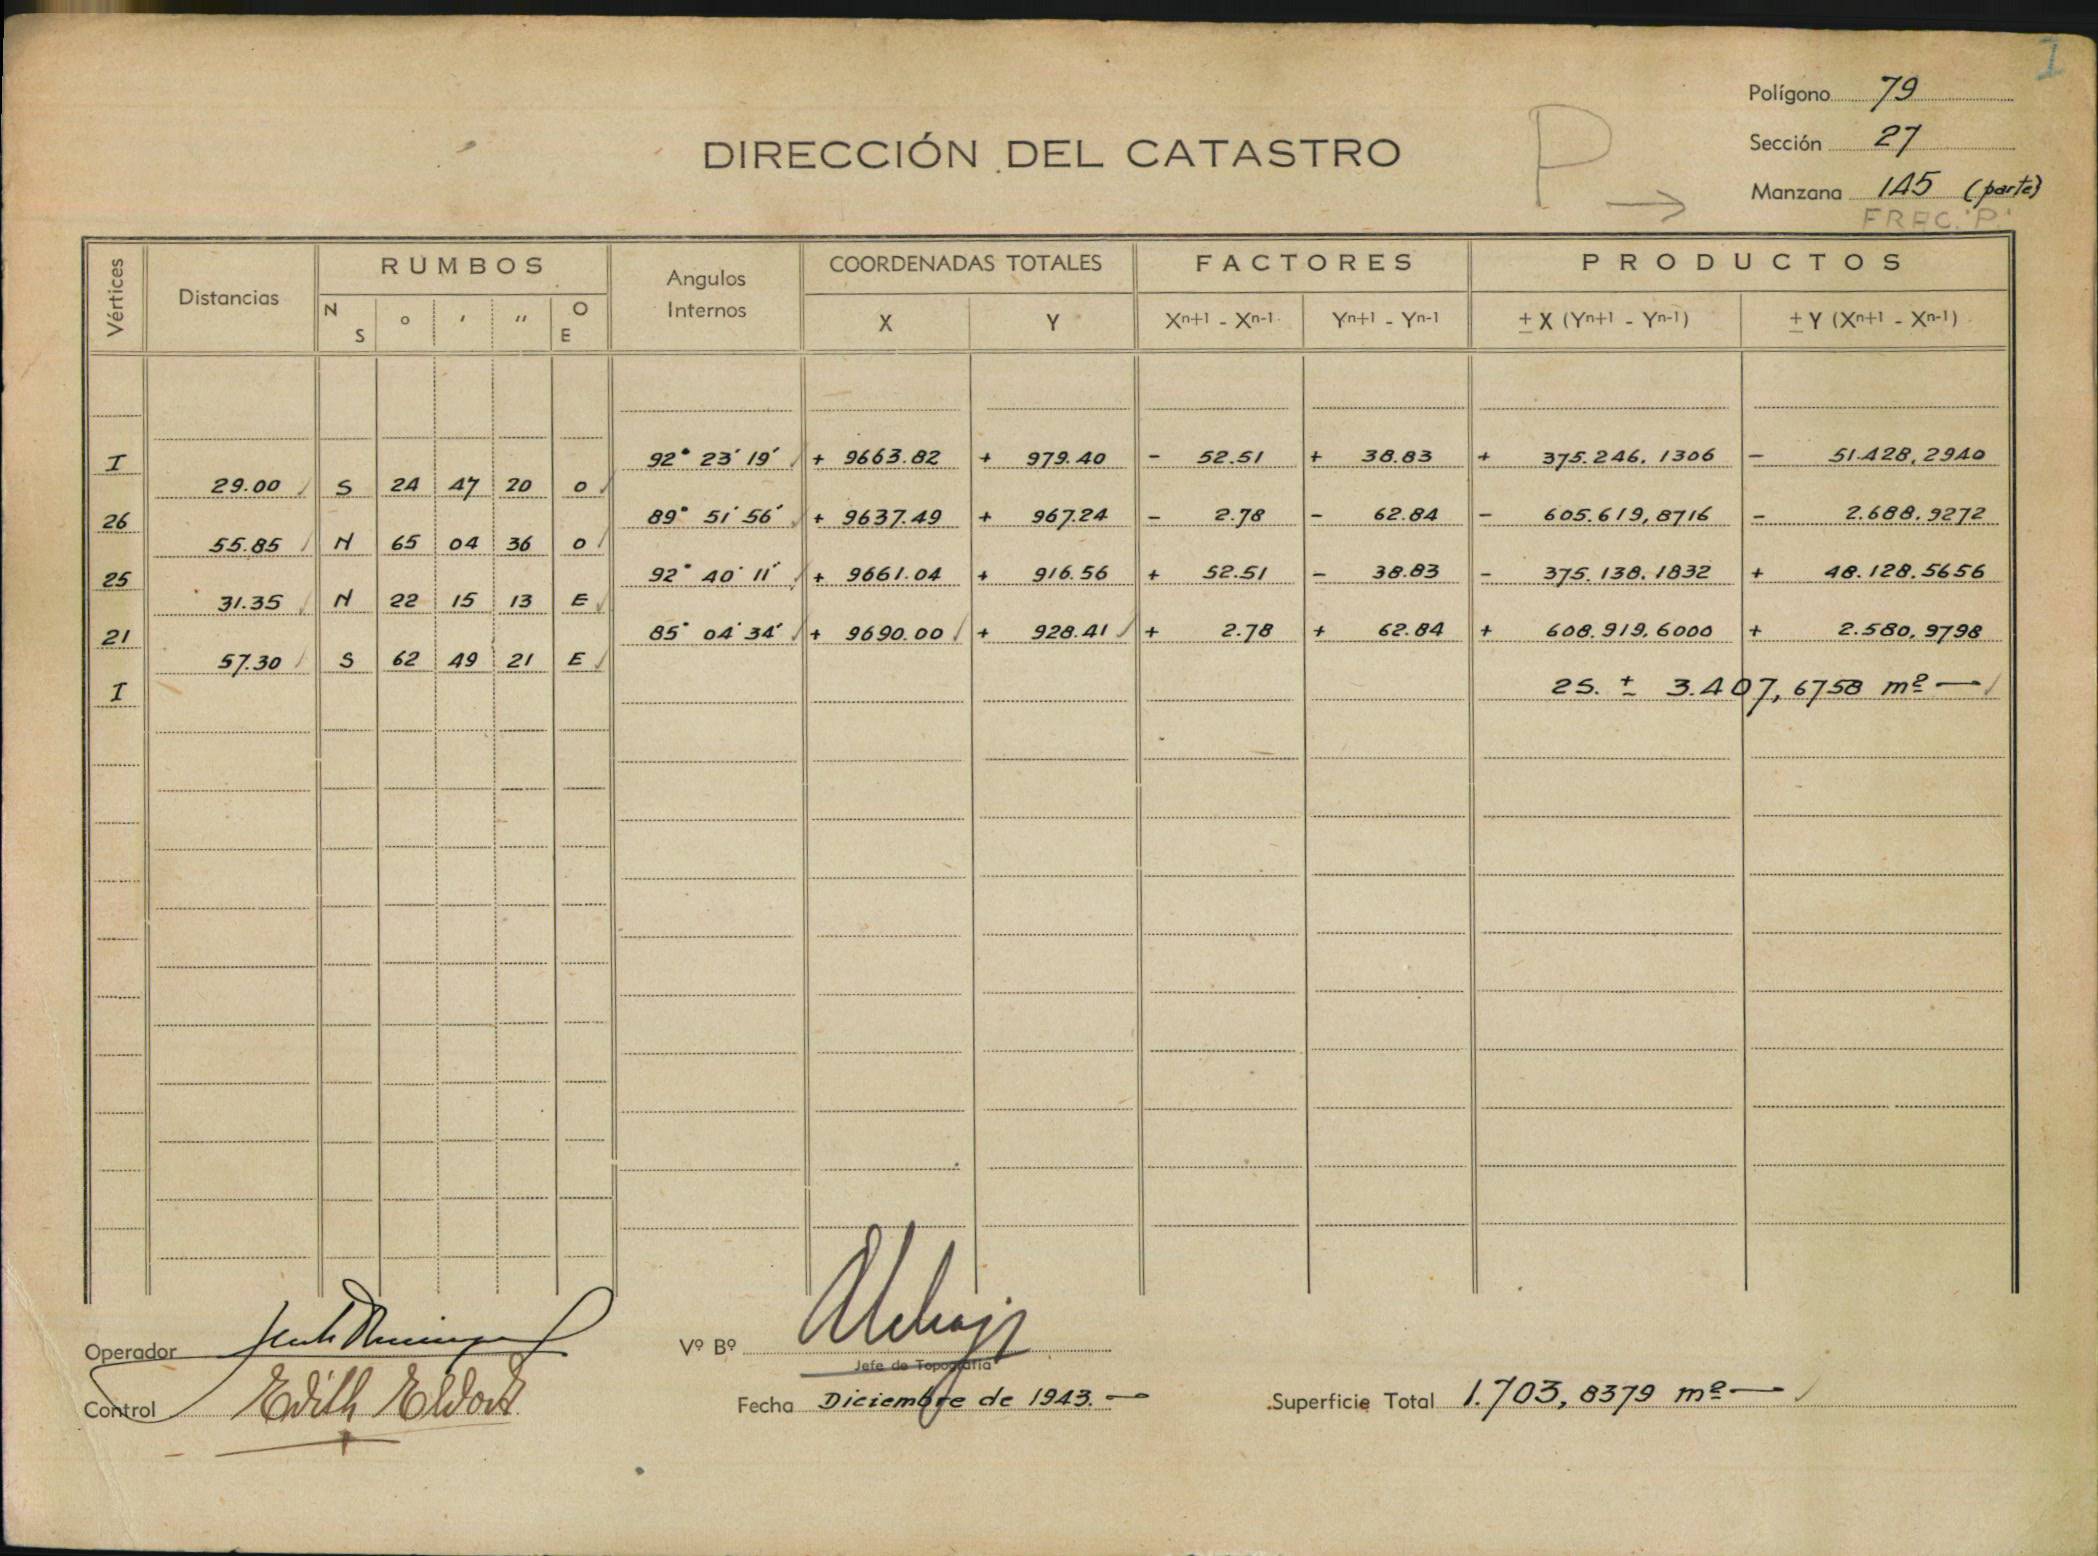 I
Polígono 79
DIRECCIÓN DEL CATASTRO
P →
Sección 27
Manzana 145 (parte)
FRAC. "P"
Vértices Distancias RUMBOS Angulos Internos COORDENADAS TOTALES FACTORES PRODUCTOS
N S ° ' " O E X Y Xn+1 - Xn-1 Yn+1 - Yn-1 ± X (Yn+1 - Yn-1) ± Y (Xn+1 - Xn-1)
I 92° 23' 19' + 9663.82 + 979.40 - 52.51 + 38.83 + 375.246,1306 - 51.428,2940
29.00 S 24 47 20 O
26 89° 51' 56' + 9637.49 + 967.24 - 2.78 - 62.84 - 605.619,8716 - 2.688.9272
55.85 N 65 04 36 O
25 92° 40' 11' + 9661.04 + 916.56 + 52.51 - 38.83 - 375.138.1832 + 48.128.5656
31.35 N 22 15 13 E
21 85° 04' 34' + 9690.00 + 928.41 + 2.78 + 62.84 + 608.919,6000 + 2.580,9798
57.30 S 62 49 21 E
I 2S. ± 3.407,6758 m2
Operador
Vº Bº
Jefe de Topografía
Control Edith
Fecha Diciembre de 1943.
Superficie Total 1.703,8379 m2